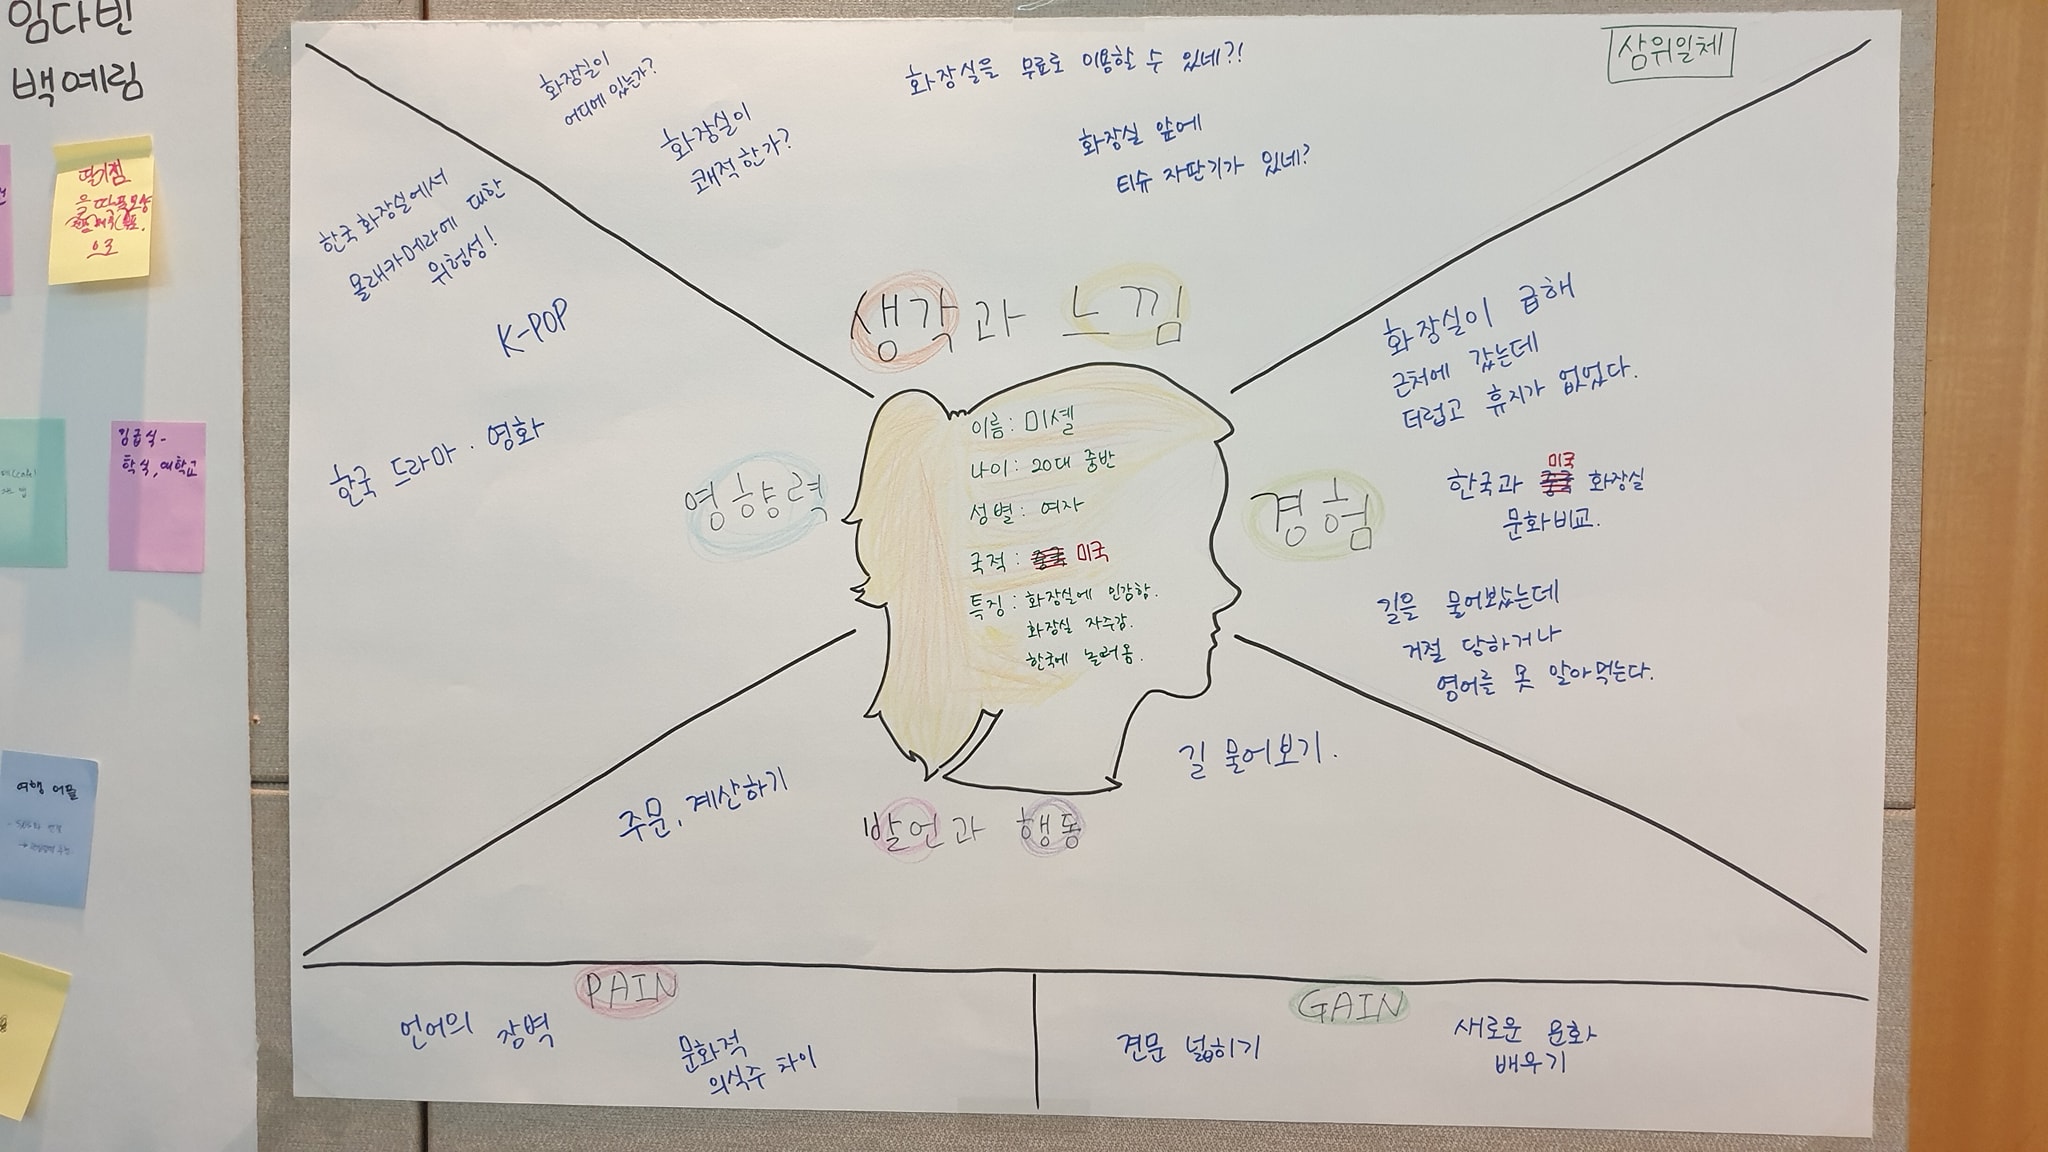 임다빈
백예림
딸기잼
으로
김급식-
학식, 여학교
여행 어플
삼위일체
화장실이
어디에 있는가?
화장실이
쾌적한가?
화장실을 무료로 이용할 수 있네?!
화장실 앞에
티슈 자판기가 있네?
생각과 느낌
한국 화장실에서
몰래카메라에 대한
위험성!
K-POP
한국 드라마 · 영화
영향력
이름: 미셸
나이: 20대 중반
성별: 여자
국적: 미국
특징: 화장실에 민감함.
화장실 자주감.
한국에 놀러옴.
경험
화장실이 급해
근처에 갔는데
더럽고 휴지가 없었다.
한국과 미국 화장실
문화비교.
길을 물어봤는데
거절 당하거나
영어를 못 알아먹는다.
발언과 행동
주문, 계산하기
길 물어보기.
PAIN
언어의 장벽
문화적
의식주 차이
GAIN
견문 넓히기
새로운 문화
배우기